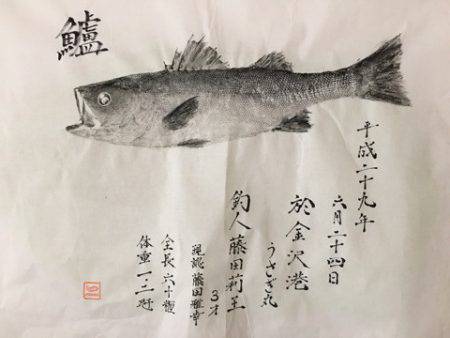 鱸
平成二十九年
六月二十四日
於金沢港
うさぎ丸
釣人 藤田莉王
3才
現認 藤田雅幸
全長 六十糎
体重 一・二瓩